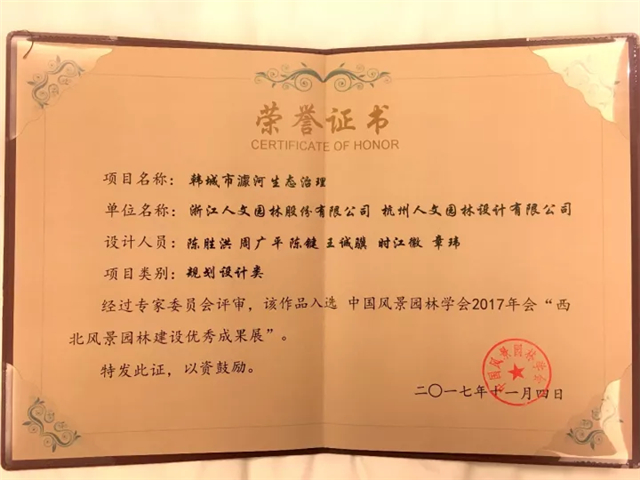 荣誉证书
CERTIFICATE OF HONOR
项目名称：韩城市澽河生态治理
单位名称：浙江人文园林股份有限公司 杭州人文园林设计有限公司
设计人员：陈胜洪 周广平 陈键 王诚骥 时江徽 章玮
项目类别：规划设计类
经过专家委员会评审，该作品入选 中国风景园林学会2017年会“西
北风景园林建设优秀成果展”。
特发此证，以资鼓励。
中国风景园林学会
二〇一七年十一月四日